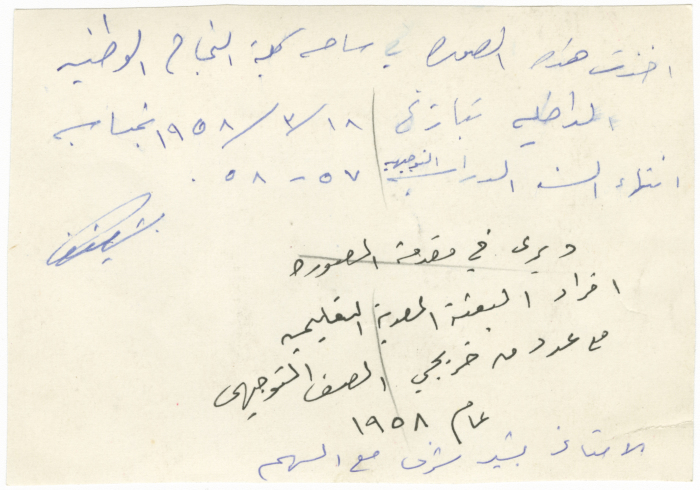 اخذت هذه الصورة في ساحة كلية النجاح الوطنية
الداخلية بتاريخ ١٨/٣/١٩٥٨ بمناسبة
انتهاء السنة الدراسية التوجيهية ٥٧ - ٥٨.
ويرى في مقدمة الصورة
افراد البعثة المصرية التعليمية
مع عدد من خريجي الصف التوجيهي
عام ١٩٥٨
الاستاذ بشير شرف مع السهم